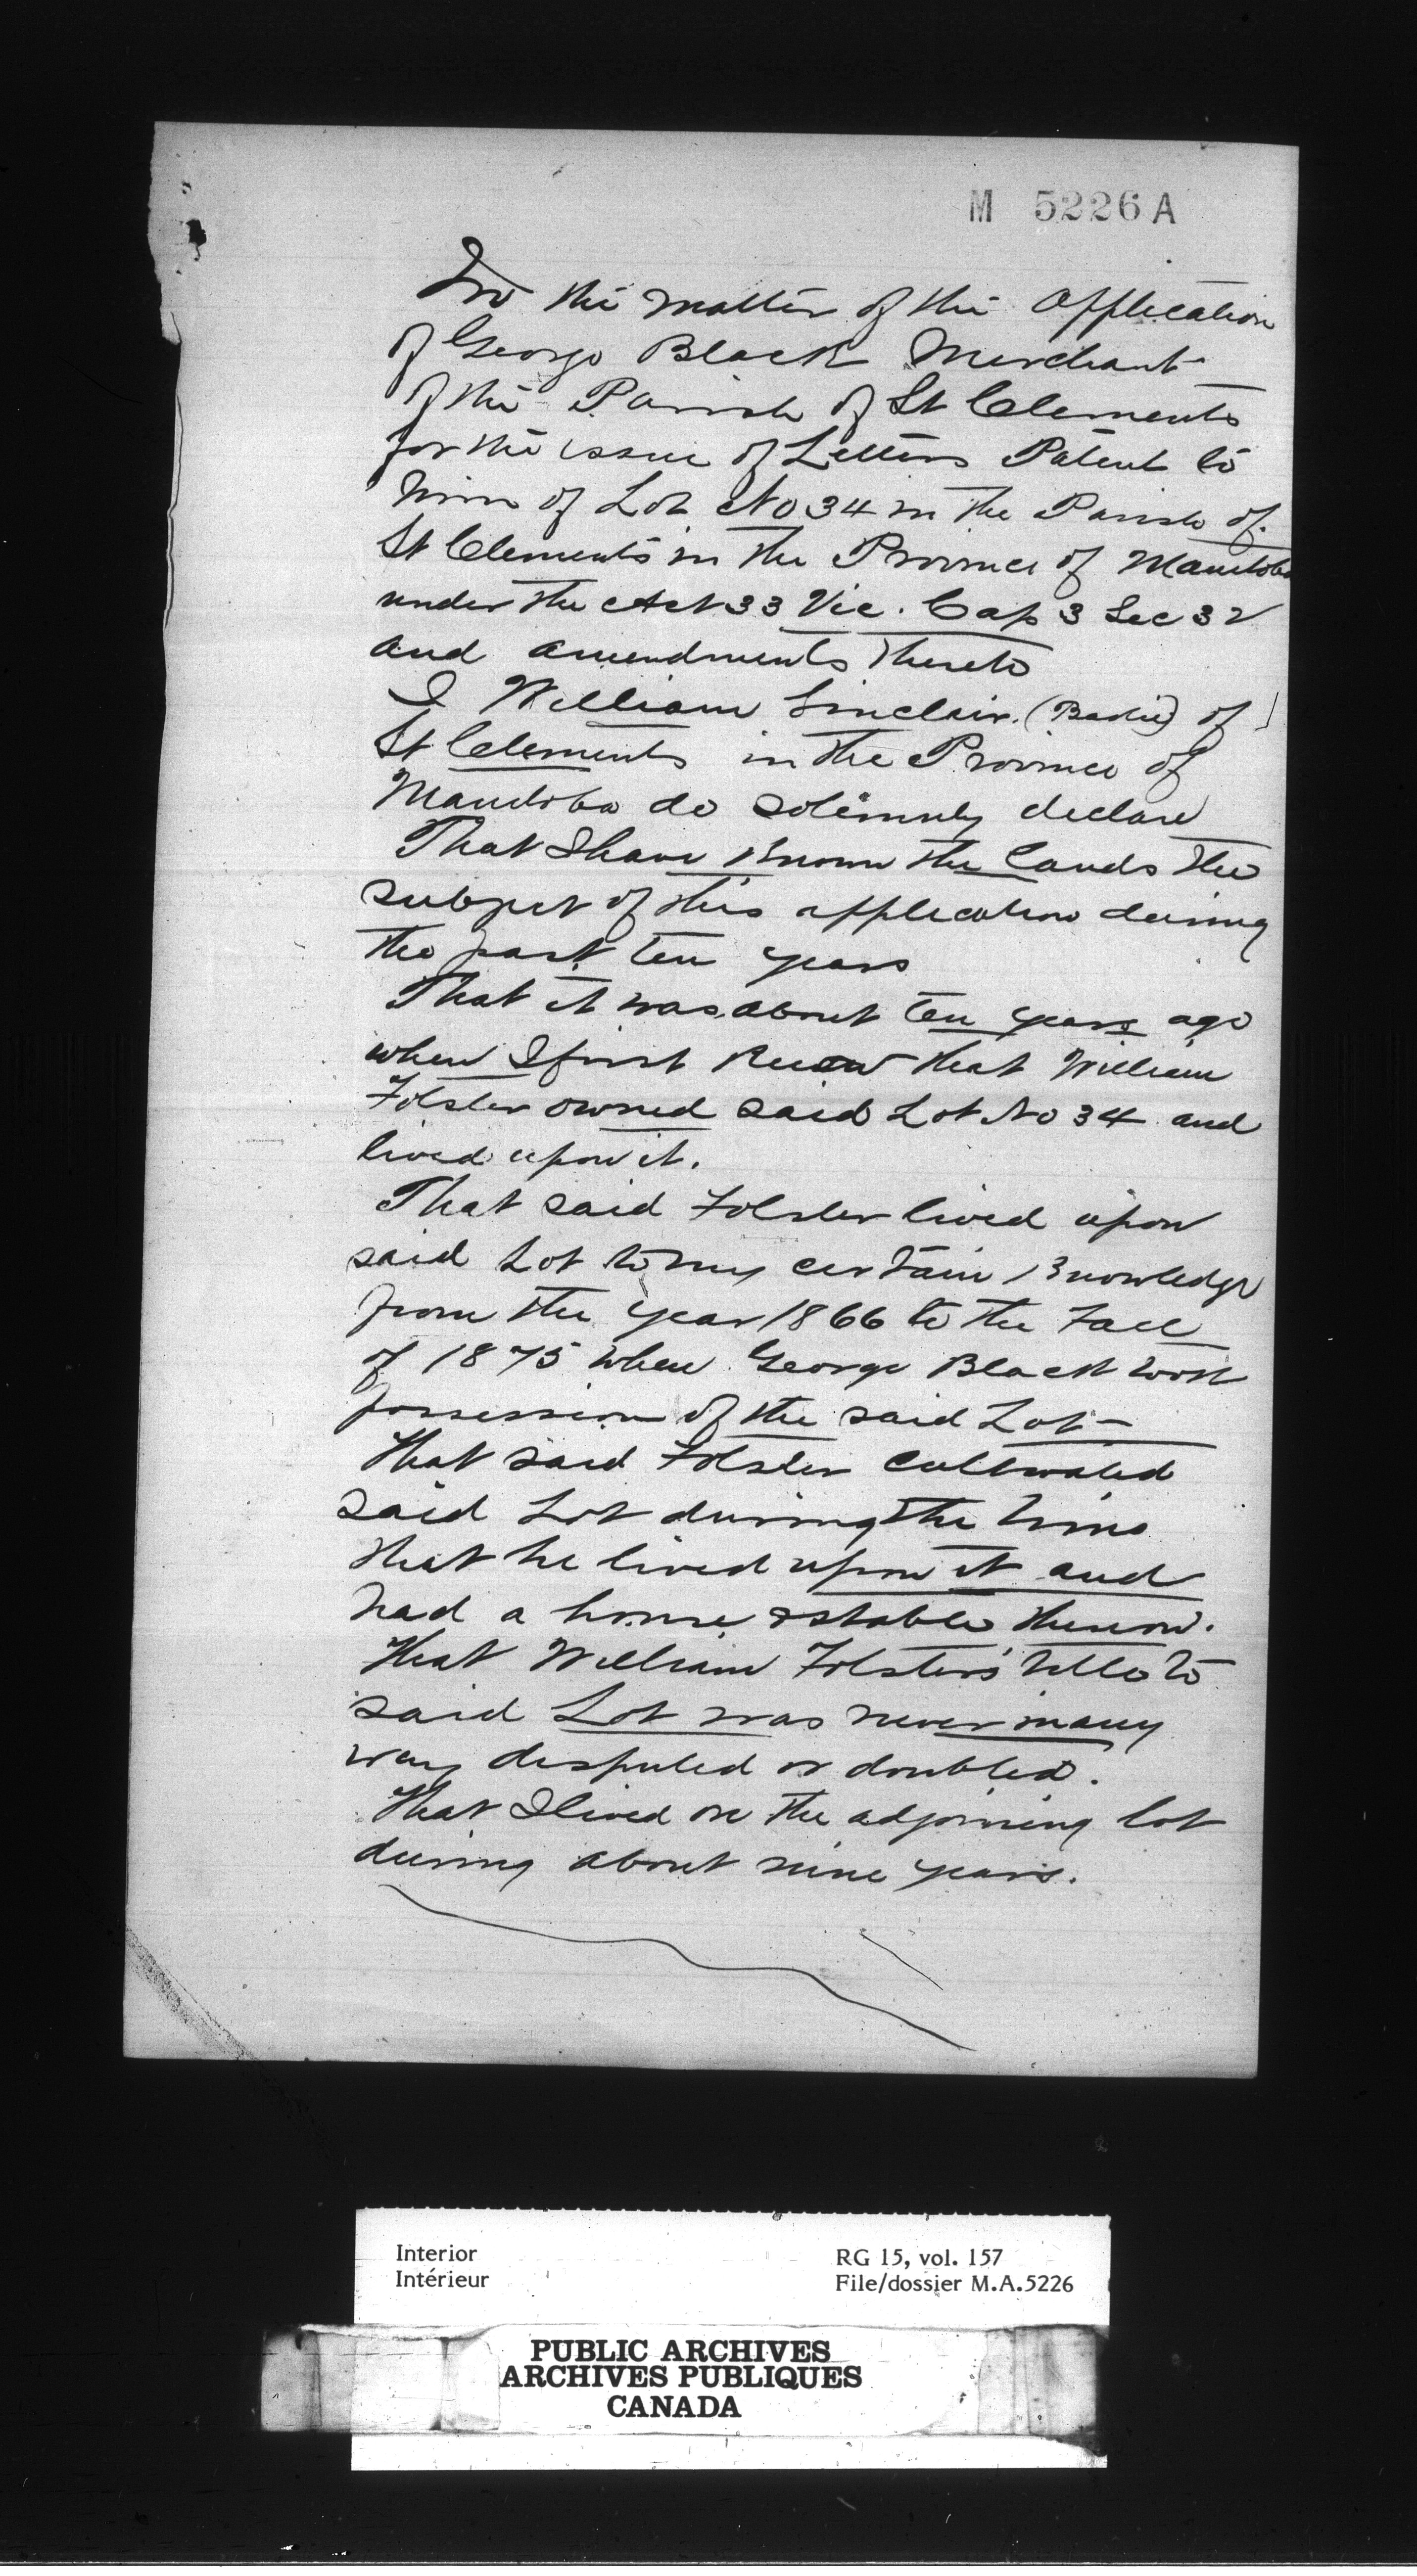 M 5226 A
In the matter of the Application
of George Black Merchant
of the Parish of St Clements
for the issue of Letters Patent to
him of Lot No 34 in the Parish of
St Clements in the Province of Manitoba
under the Act 33 Vic. Cap 3 Sec 32
and amendments thereto
I William Sinclair of
St Clements in the Province of
Manitoba do solemnly declare
That I have known the lands the
subject of this application during
the past ten years
That it was about ten years ago
when I first knew that William
Folster owned said Lot No 34 and
lived upon it.
That said Folster lived upon
said Lot to my certain knowledge
from the year 1866 to the Fall
of 1875 when George Black took
possession of the said Lot
That said Folster cultivated
said Lot during the time
that he lived upon it and
had a house & stable thereon.
That William Folster's title to
said Lot was never in any
way disputed or doubted.
That I lived on the adjoining lot
during about nine years.
Interior
Intérieur
RG 15, vol. 157
File/dossier M.A.5226
PUBLIC ARCHIVES
ARCHIVES PUBLIQUES
CANADA